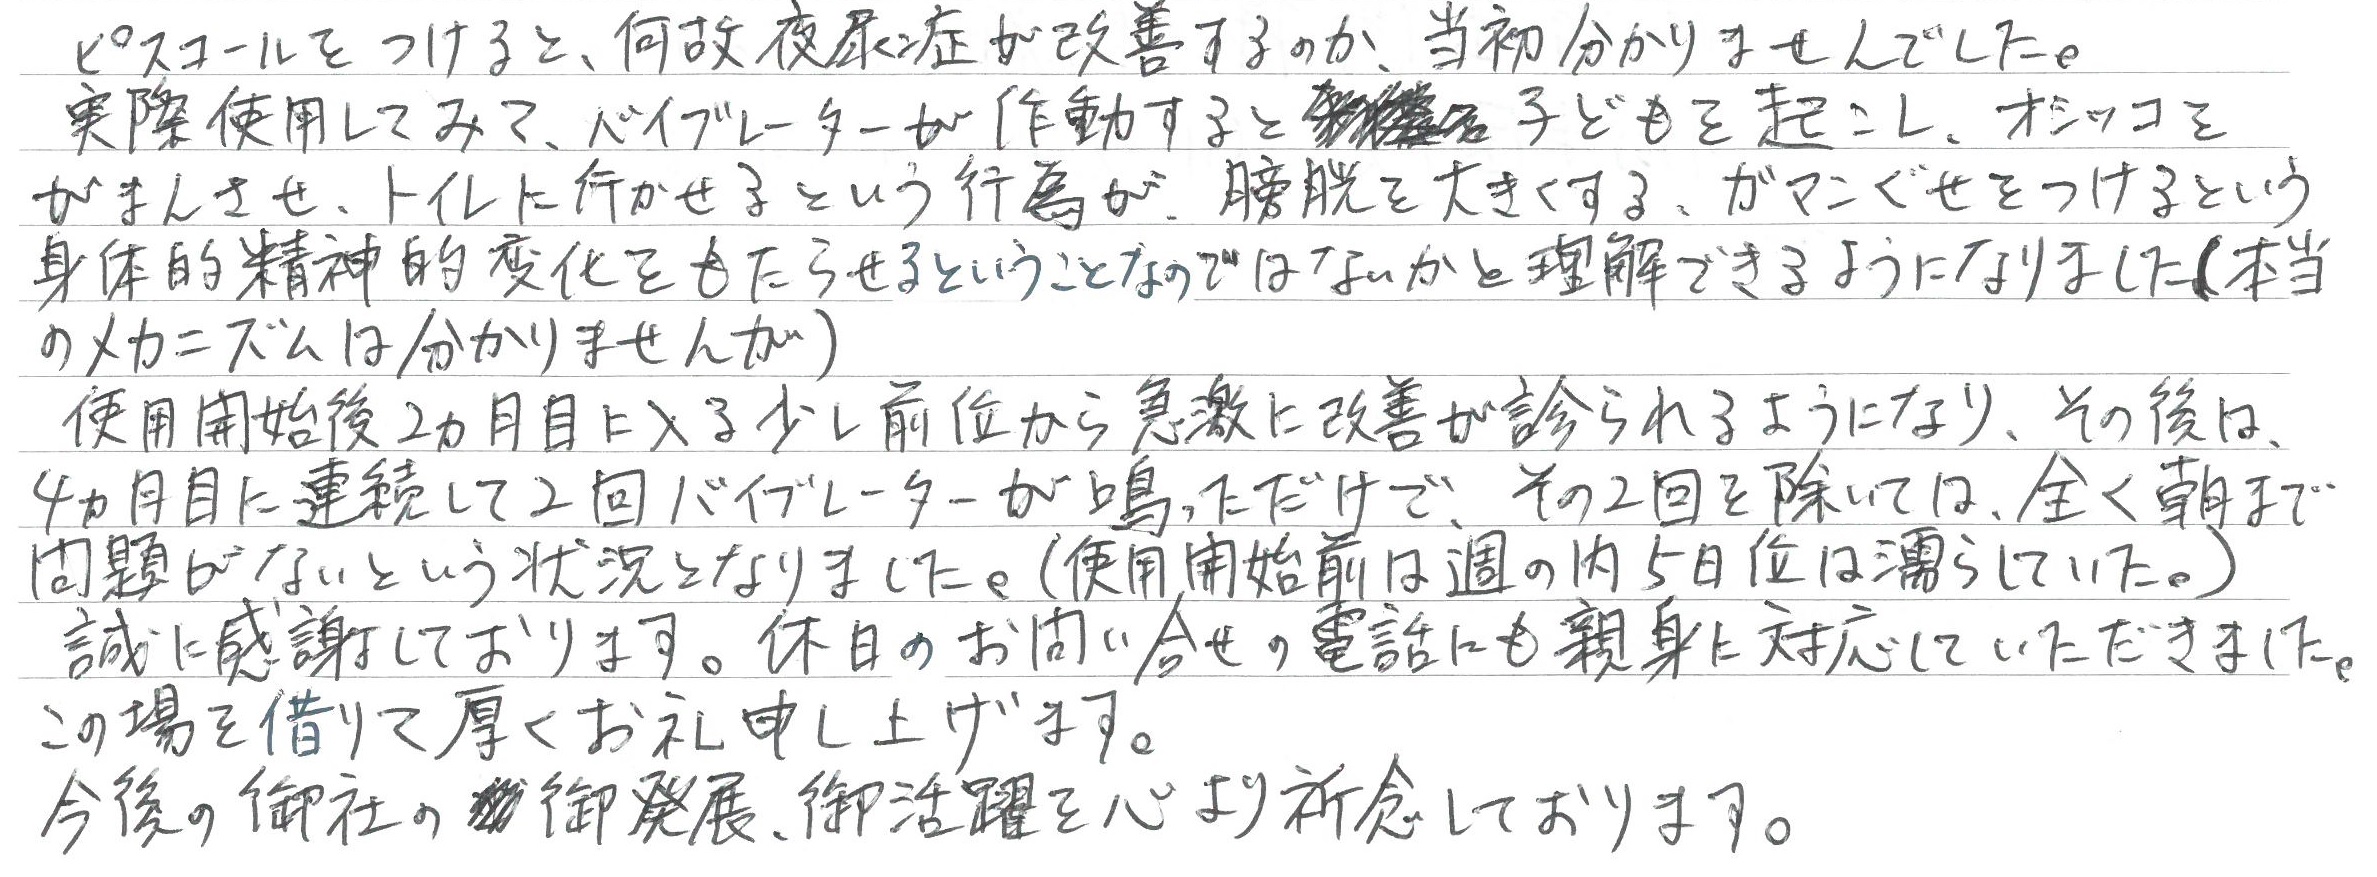 ピスコールをつけると、何故夜尿症が改善するのか、当初分かりませんでした。
実際使用してみて、バイブレーターが作動すると子どもを起こし、オシッコを
がまんさせ、トイレに行かせるという行為が、膀胱を大きくする、ガマンぐせをつけるという
身体的精神的変化をもたらせるということなのではないかと理解できるようになりました(本当
のメカニズムは分かりませんが)
使用開始後2ヵ月目に入る少し前位から急激に改善が診られるようになり、その後は、
4ヵ月目に連続して2回バイブレーターが鳴っただけで、その2回を除いては、全く朝まで
問題がないという状況となりました。(使用開始前は週の内5日位は濡らしていた。)
誠に感謝しております。休日のお問い合せの電話にも親身に対応していただきました。
この場を借りて厚くお礼申し上げます。
今後の御社の御発展、御活躍を心より祈念しております。